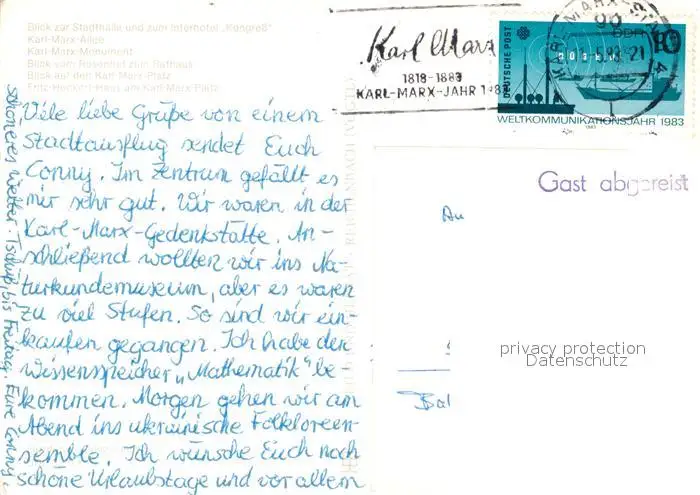 Blick zur Stadthalle und zum Interhotel "Kongreß"
Karl-Marx-Allee
Karl-Marx-Monument
Blick vom Rosenhof zum Rathaus
Blick auf den Karl-Marx-Platz
Fritz-Heckert-Haus am Karl-Marx-Platz
Viele liebe Grüße von einem
Stadtausflug sendet Euch
Conny. Im Zentrum gefällt es
mir sehr gut. Wir waren in der
Karl-Marx-Gedenkstätte. An-
schließend wollten wir ins Na-
turkundemuseum, aber es waren
zu viel Stufen. So sind wir ein-
kaufen gegangen. Ich habe den
Wissensspeicher „Mathematik" be-
kommen. Morgen gehen wir am
Abend ins ukrainische Folkloreen-
semble. Ich wünsche Euch noch
schöne Urlaubstage und vor allem
schöneres Wetter. Tschüß, bis Freitag. Eure Conny.
Karl Marx
1818-1883
KARL-MARX-JAHR 1983
KARL-MARX-STADT
90
DEUTSCHE POST
DDR
10
WELTKOMMUNIKATIONSJAHR 1983
1983
Gast abgereist
An
privacy protection
Datenschutz
Bal